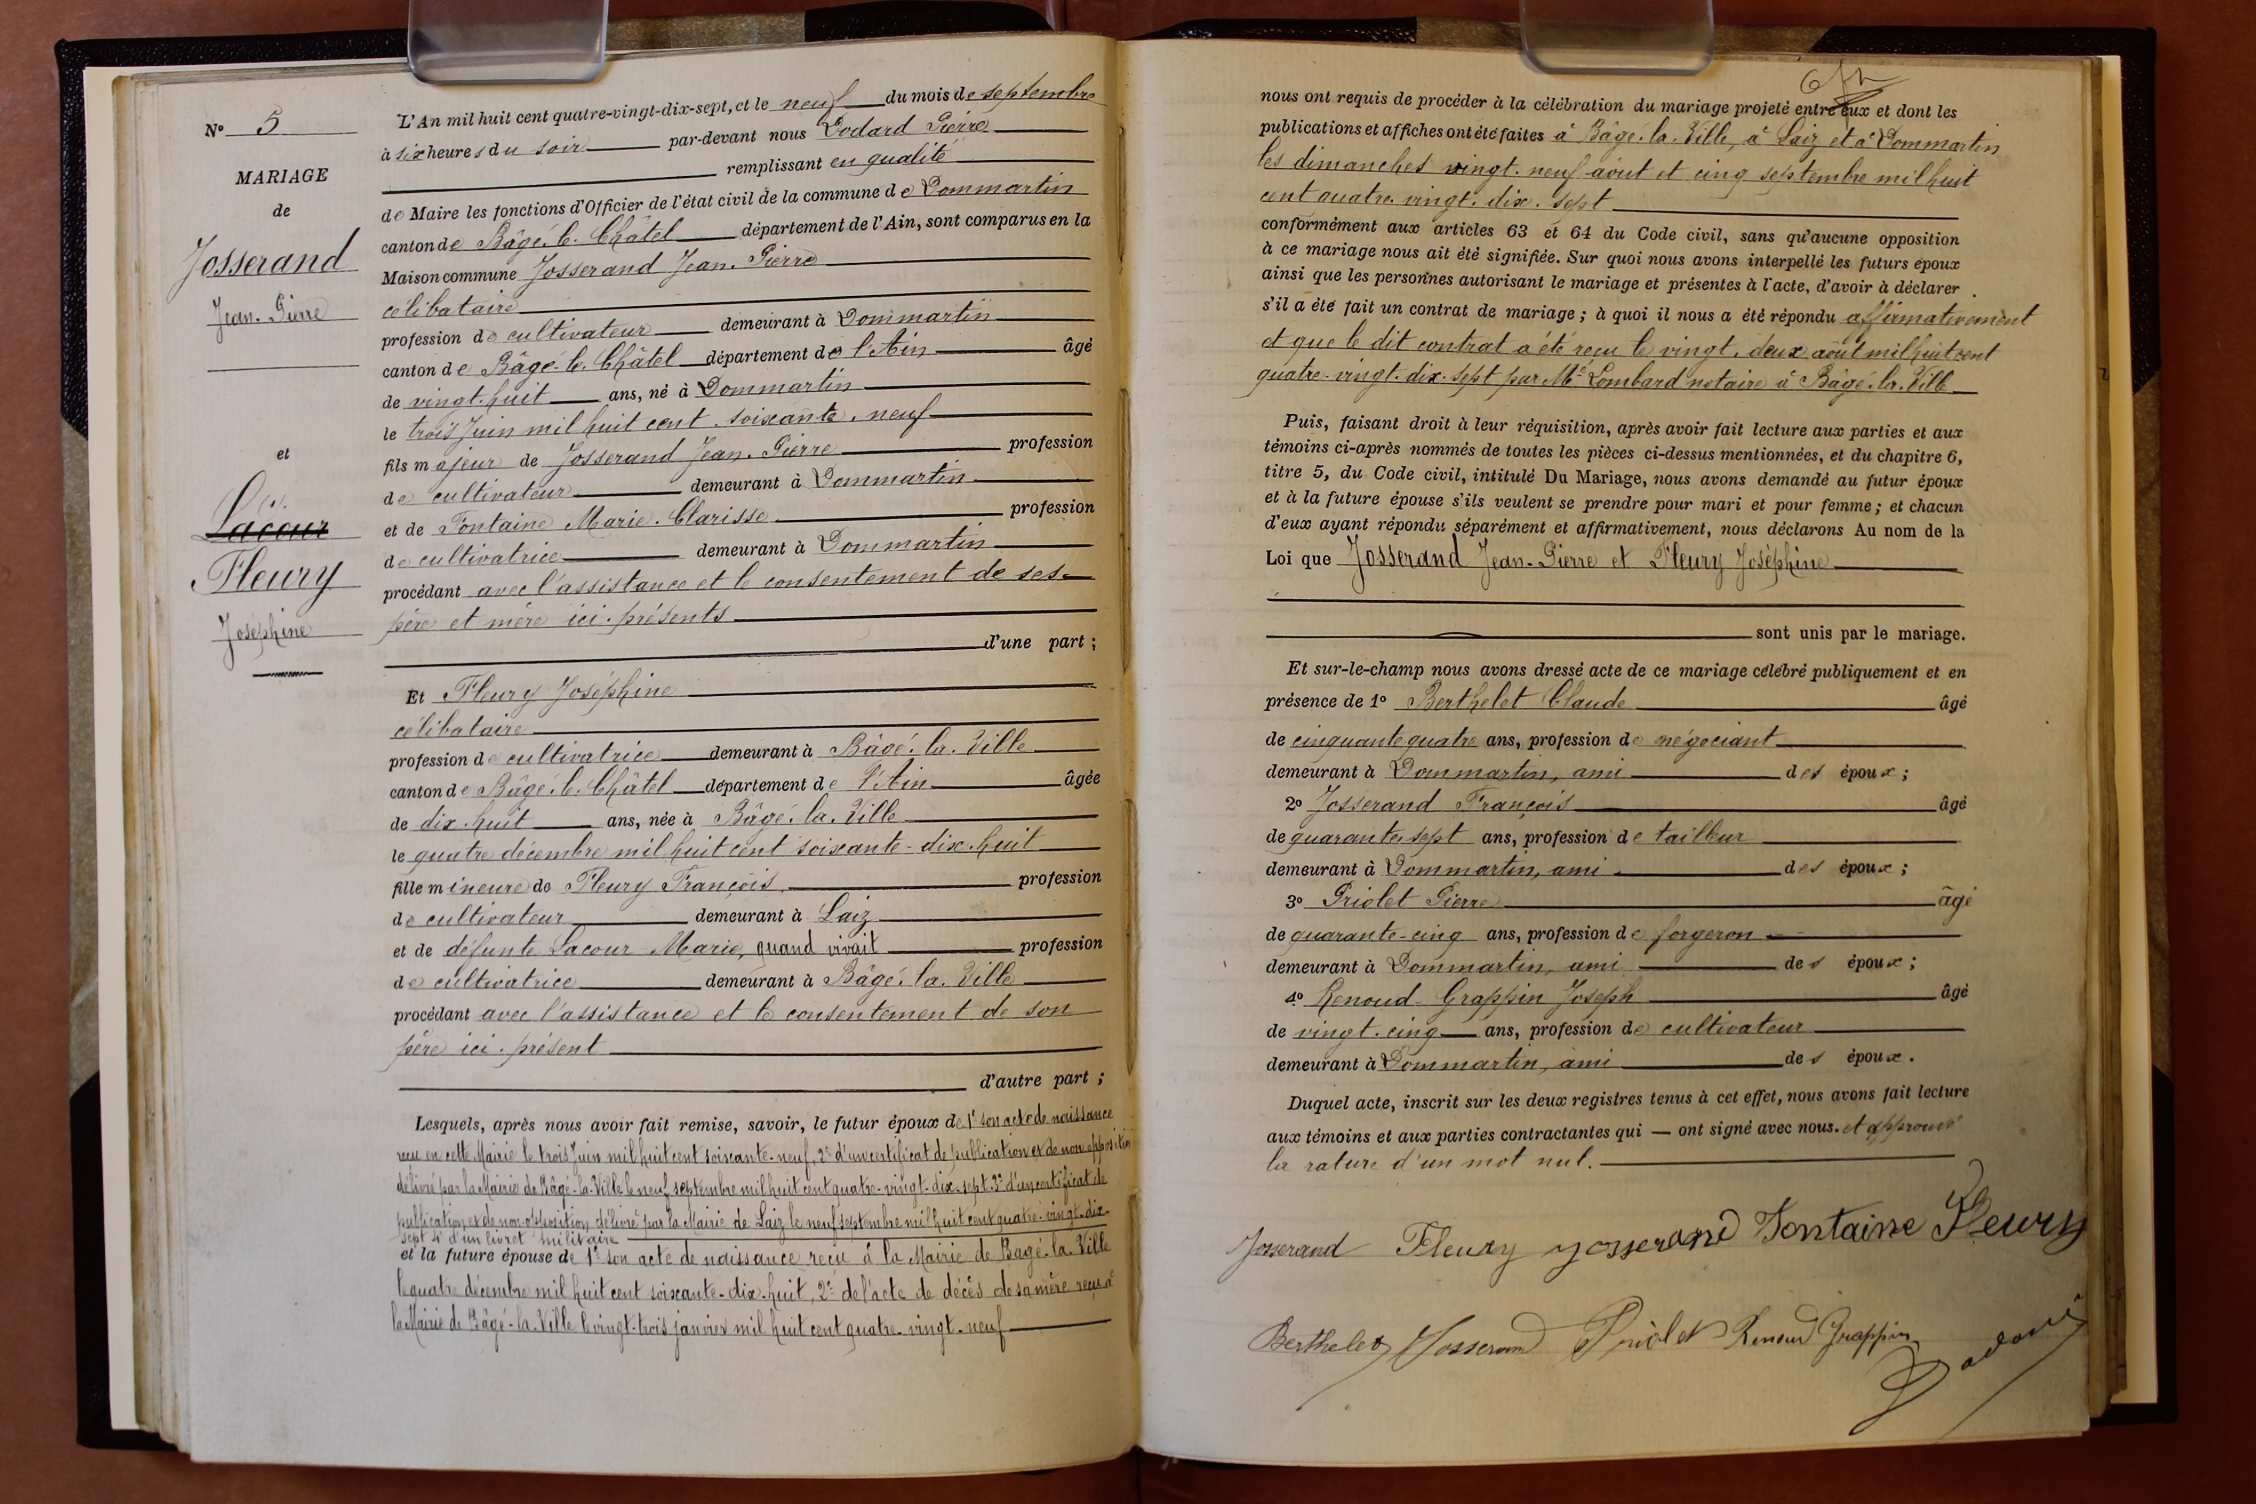 N° 5
MARIAGE
de
Josserand
Jean-Pierre
et
Lacour
Fleury
Joséphine
L'An mil huit cent quatre-vingt-dix-sept, et le neuf du mois de septembre
à six heures du soir par-devant nous Dodard Pierre
remplissant en qualité
de Maire les fonctions d'Officier de l'état civil de la commune de Dommartin
canton de Bâgé-le-Châtel département de l'Ain, sont comparus en la
Maison commune Josserand Jean-Pierre
célibataire
profession de cultivateur demeurant à Dommartin
canton de Bâgé-le-Châtel département de l'Ain âgé
de vingt-huit ans, né à Dommartin
le trois Juin mil huit cent soixante-neuf
fils majeur de Josserand Jean-Pierre profession
de cultivateur demeurant à Dommartin
et de Fontaine Marie-Clarisse profession
de cultivatrice demeurant à Dommartin
procédant avec l'assistance et le consentement de ses
père et mère ici-présents
d'une part ;
Et Fleury Joséphine
célibataire
profession de cultivatrice demeurant à Bâgé-la-Ville
canton de Bâgé-le-Châtel département de l'Ain âgée
de dix-huit ans, née à Bâgé-la-Ville
le quatre décembre mil huit cent soixante-dix-huit
fille mineure de Fleury François profession
de cultivateur demeurant à Laiz
et de défunte Lacour Marie, quand vivait profession
de cultivatrice demeurant à Bâgé-la-Ville
procédant avec l'assistance et le consentement de son
père ici-présent
d'autre part ;
Lesquels, après nous avoir fait remise, savoir, le futur époux de 1° son acte de naissance
reçu en cette Mairie le trois Juin mil huit cent soixante-neuf, 2° d'un certificat de publication et de non opposition
délivré par la Mairie de Bâgé-la-Ville le neuf septembre mil huit cent quatre-vingt-dix-sept 3° d'un certificat de
publication et de non-opposition délivré par la Mairie de Laiz le neuf septembre mil huit cent quatre-vingt-dix-
sept 4° d'un livret militaire
et la future épouse de 1° son acte de naissance reçu à la Mairie de Bagé-la-Ville
le quatre décembre mil huit cent soixante-dix-huit, 2° de l'acte de décès de sa mère reçu à
la Mairie de Bâgé-la-Ville le vingt-trois janvier mil huit cent quatre-vingt-neuf
nous ont requis de procéder à la célébration du mariage projeté entre eux et dont les
publications et affiches ont été faites à Bâgé-la-Ville, à Laiz et à Dommartin
les dimanches vingt-neuf août et cinq septembre mil huit
cent quatre-vingt-dix-sept
conformément aux articles 63 et 64 du Code civil, sans qu'aucune opposition
à ce mariage nous ait été signifiée. Sur quoi nous avons interpellé les futurs époux
ainsi que les personnes autorisant le mariage et présentes à l'acte, d'avoir à déclarer
s'il a été fait un contrat de mariage ; à quoi il nous a été répondu affirmativement
et que le dit contrat a été reçu le vingt-deux août mil huit cent
quatre-vingt-dix-sept par Me Lombard notaire à Bâgé-la-Ville
Puis, faisant droit à leur réquisition, après avoir fait lecture aux parties et aux
témoins ci-après nommés de toutes les pièces ci-dessus mentionnées, et du chapitre 6,
titre 5, du Code civil, intitulé Du Mariage, nous avons demandé au futur époux
et à la future épouse s'ils veulent se prendre pour mari et pour femme ; et chacun
d'eux ayant répondu séparément et affirmativement, nous déclarons Au nom de la
Loi que Josserand Jean-Pierre et Fleury Joséphine
sont unis par le mariage.
Et sur-le-champ nous avons dressé acte de ce mariage célébré publiquement et en
présence de 1° Berthelet Claude âgé
de cinquante quatre ans, profession de négociant
demeurant à Dommartin, ami des époux ;
2° Josserand François âgé
de quarante-sept ans, profession de tailleur
demeurant à Dommartin, ami des époux ;
3° Priolet Pierre âgé
de quarante-cinq ans, profession de forgeron
demeurant à Dommartin, ami des époux ;
4° Renoud-Grappin Joseph âgé
de vingt-cinq ans, profession de cultivateur
demeurant à Dommartin, ami des époux.
Duquel acte, inscrit sur les deux registres tenus à cet effet, nous avons fait lecture
aux témoins et aux parties contractantes qui — ont signé avec nous. et approuvé
la rature d'un mot nul.
Josserand Fleury Josserand Fontaine Fleury
Berthelet Josserand Priolet Renoud Grappin
Dodard